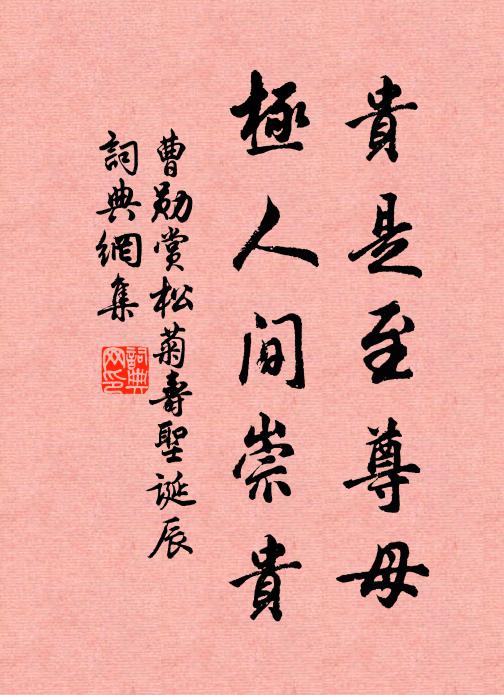 貴是至尊母
極人間崇貴
曹勛賞松菊壽聖誕辰
詞典網集
詞典
网印